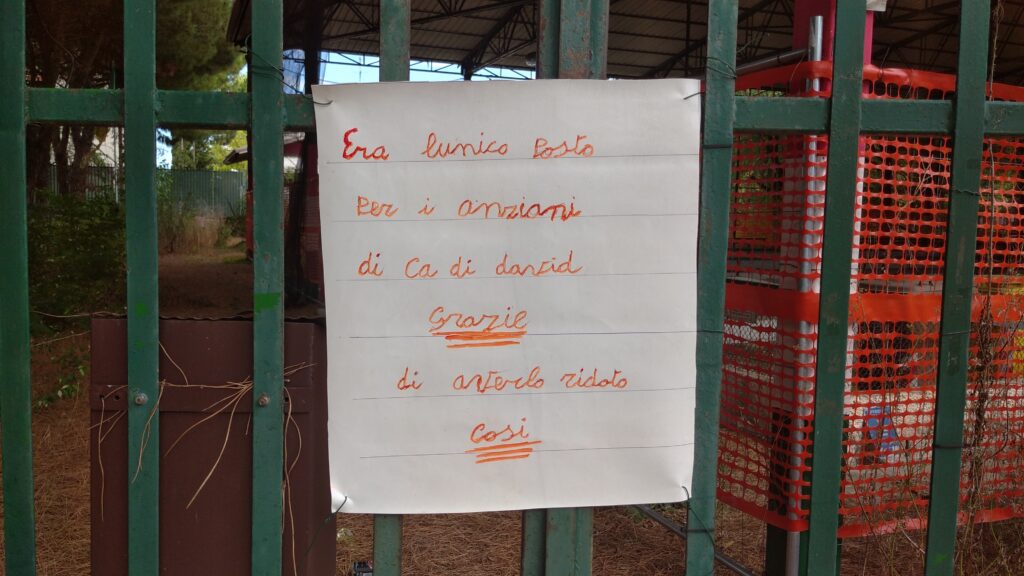 Era lunico Posto
Per i anziani
di Ca di david
Grazie
di averlo ridoto
Cosi